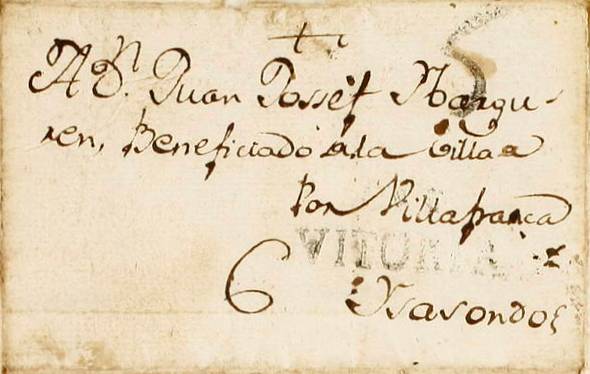 A Dn. Juan Josséf Ybarгu-
ren, Beneficiado de la Villa de
Por Villafranca
VITORIA
6 Ysasondo